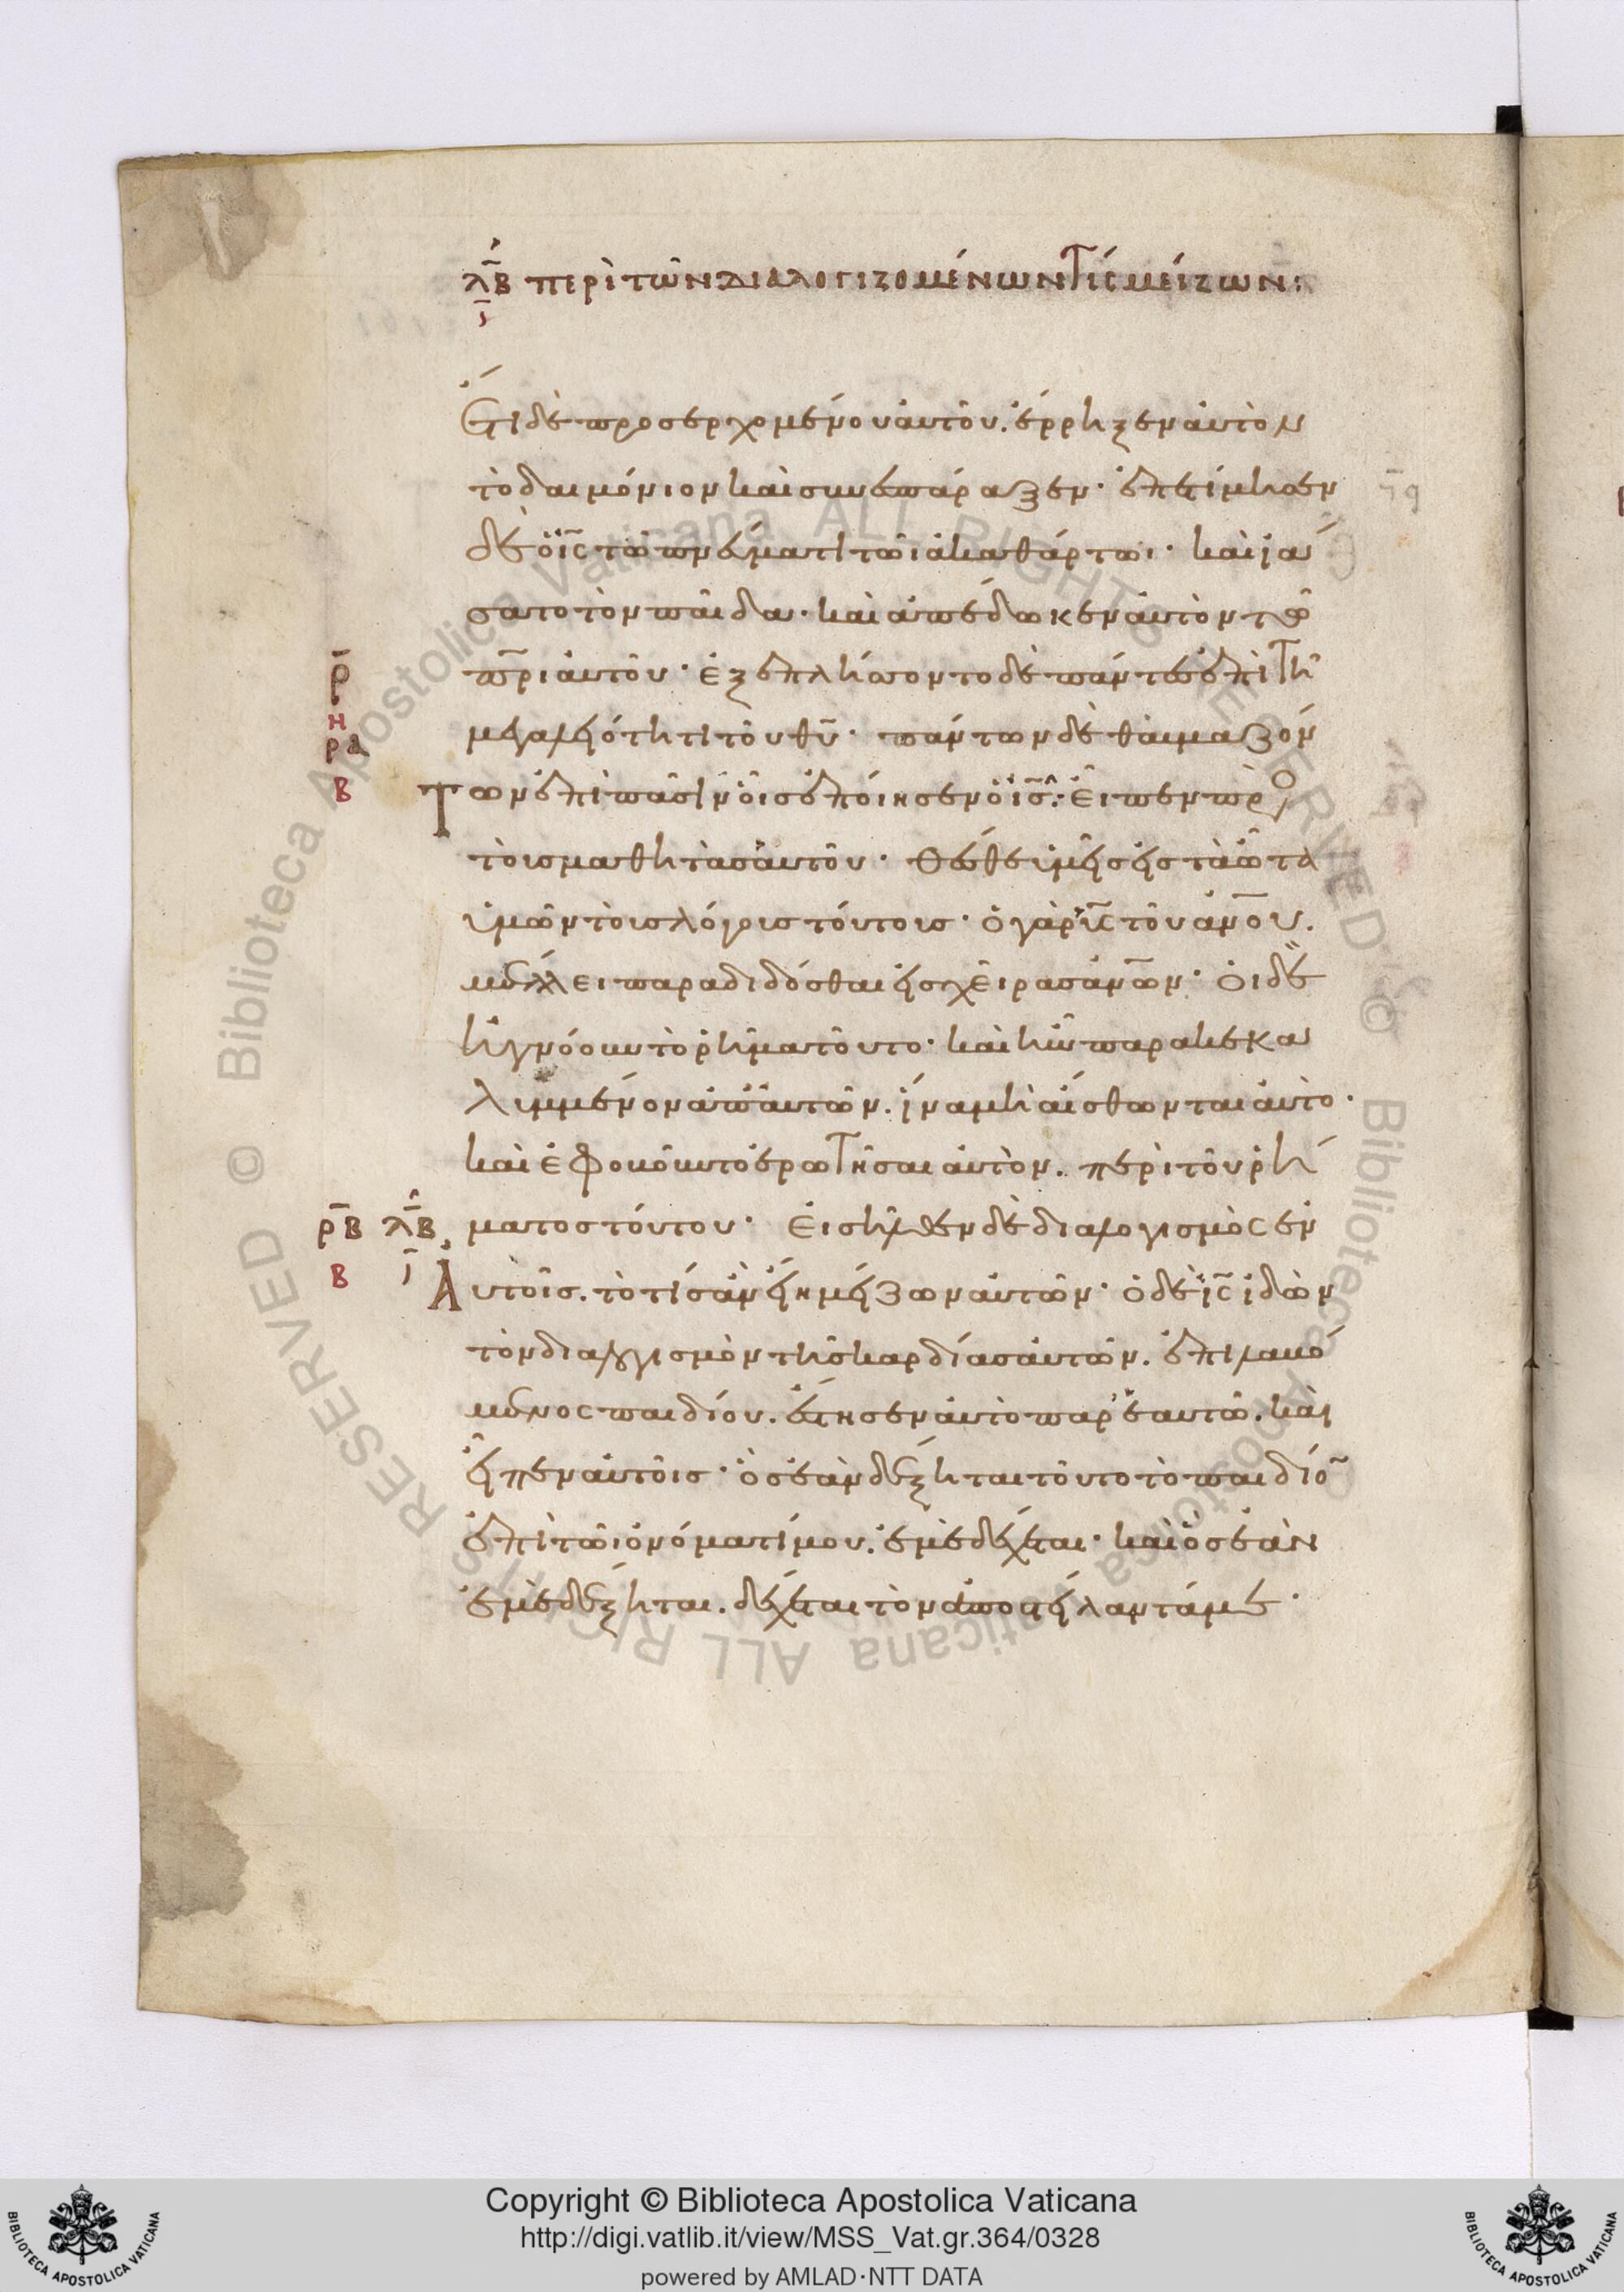 λβ περὶ τῶν διαλογιζομένων τίς μείζων:
ι
Ἔτι δὲ προσερχομένου αὐτοῦ. ἔρρηξεν αὐτὸν
τὸ δαιμόνιον καὶ συνεσπάραξεν· ἐπετίμησεν
δὲ ὁ ις τῶ πνευματι τῶι ἀκαθάρτωι· καὶ ἰά
σατο τὸν παῖδα· καὶ ἀπέδωκεν αὐτὸν τῷ
πρι αὐτοῦ· ἐξεπλήσσοντο δὲ πάντες ἐπὶ τῆ
ρ
μεγαλειότητι τοῦ θυ· πάντων δὲ θαυμαζόν
η
ρα
των ἐπὶ πᾶσιν οἷς ἐποίησεν ὁ ις· εἶπεν πρὸς
β
τοὺς μαθητὰς αὐτοῦ· θέσθε ὑμεῖς εἰς τὰ ὦτα
ὑμῶν τοὺς λόγους τούτους· ὁ γὰρ υς τοῦ ανου.
μέλλει παραδίδοσθαι εἰς χεῖρας ανων· οἱ δὲ
ἠγνόουν τὸ ῥῆμα τοῦτο· καὶ ἦν παρακεκα
λυμμένον ἀπ' αὐτῶν. ἵνα μὴ αἴσθωνται αὐτό·
καὶ ἐφοβοῦντο ἐρωτῆσαι αὐτὸν. περὶ τοῦ ῥή
ρβ λβ ματος τούτου· εἰσῆλθεν δὲ διαλογισμὸς ἐν
β ι Αὐτοῖς. τὸ τίς ἂν εἴη μείζων αὐτῶν· ὁ δὲ ις ἰδὼν
τὸν διαλογισμὸν τῆς καρδίας αὐτῶν. ἐπιλαβό
μενος παιδίου. ἔστησεν αὐτὸ παρ' ἑαυτῶ. καὶ
εἶπεν αὐτοῖς· ὃς ἐὰν δέξηται τοῦτο τὸ παιδίο
ἐπὶ τῶι ὀνόματί μου. ἐμὲ δέχεται· καὶ ὃς ἐὰν
ἐμὲ δέξηται. δέχεται τὸν ἀποστείλαντά με·
Copyright © Biblioteca Apostolica Vaticana
http://digi.vatlib.it/view/MSS_Vat.gr.364/0328
powered by AMLAD·NTT DATA
BIBLIOTECA APOSTOLICA VATICANA
BIBLIOTECA APOSTOLICA VATICANA
© Biblioteca Apostolica Vaticana ALL RIGHTS RESERVED © Biblioteca Apostolica Vaticana ALL RIGHTS RESERVED